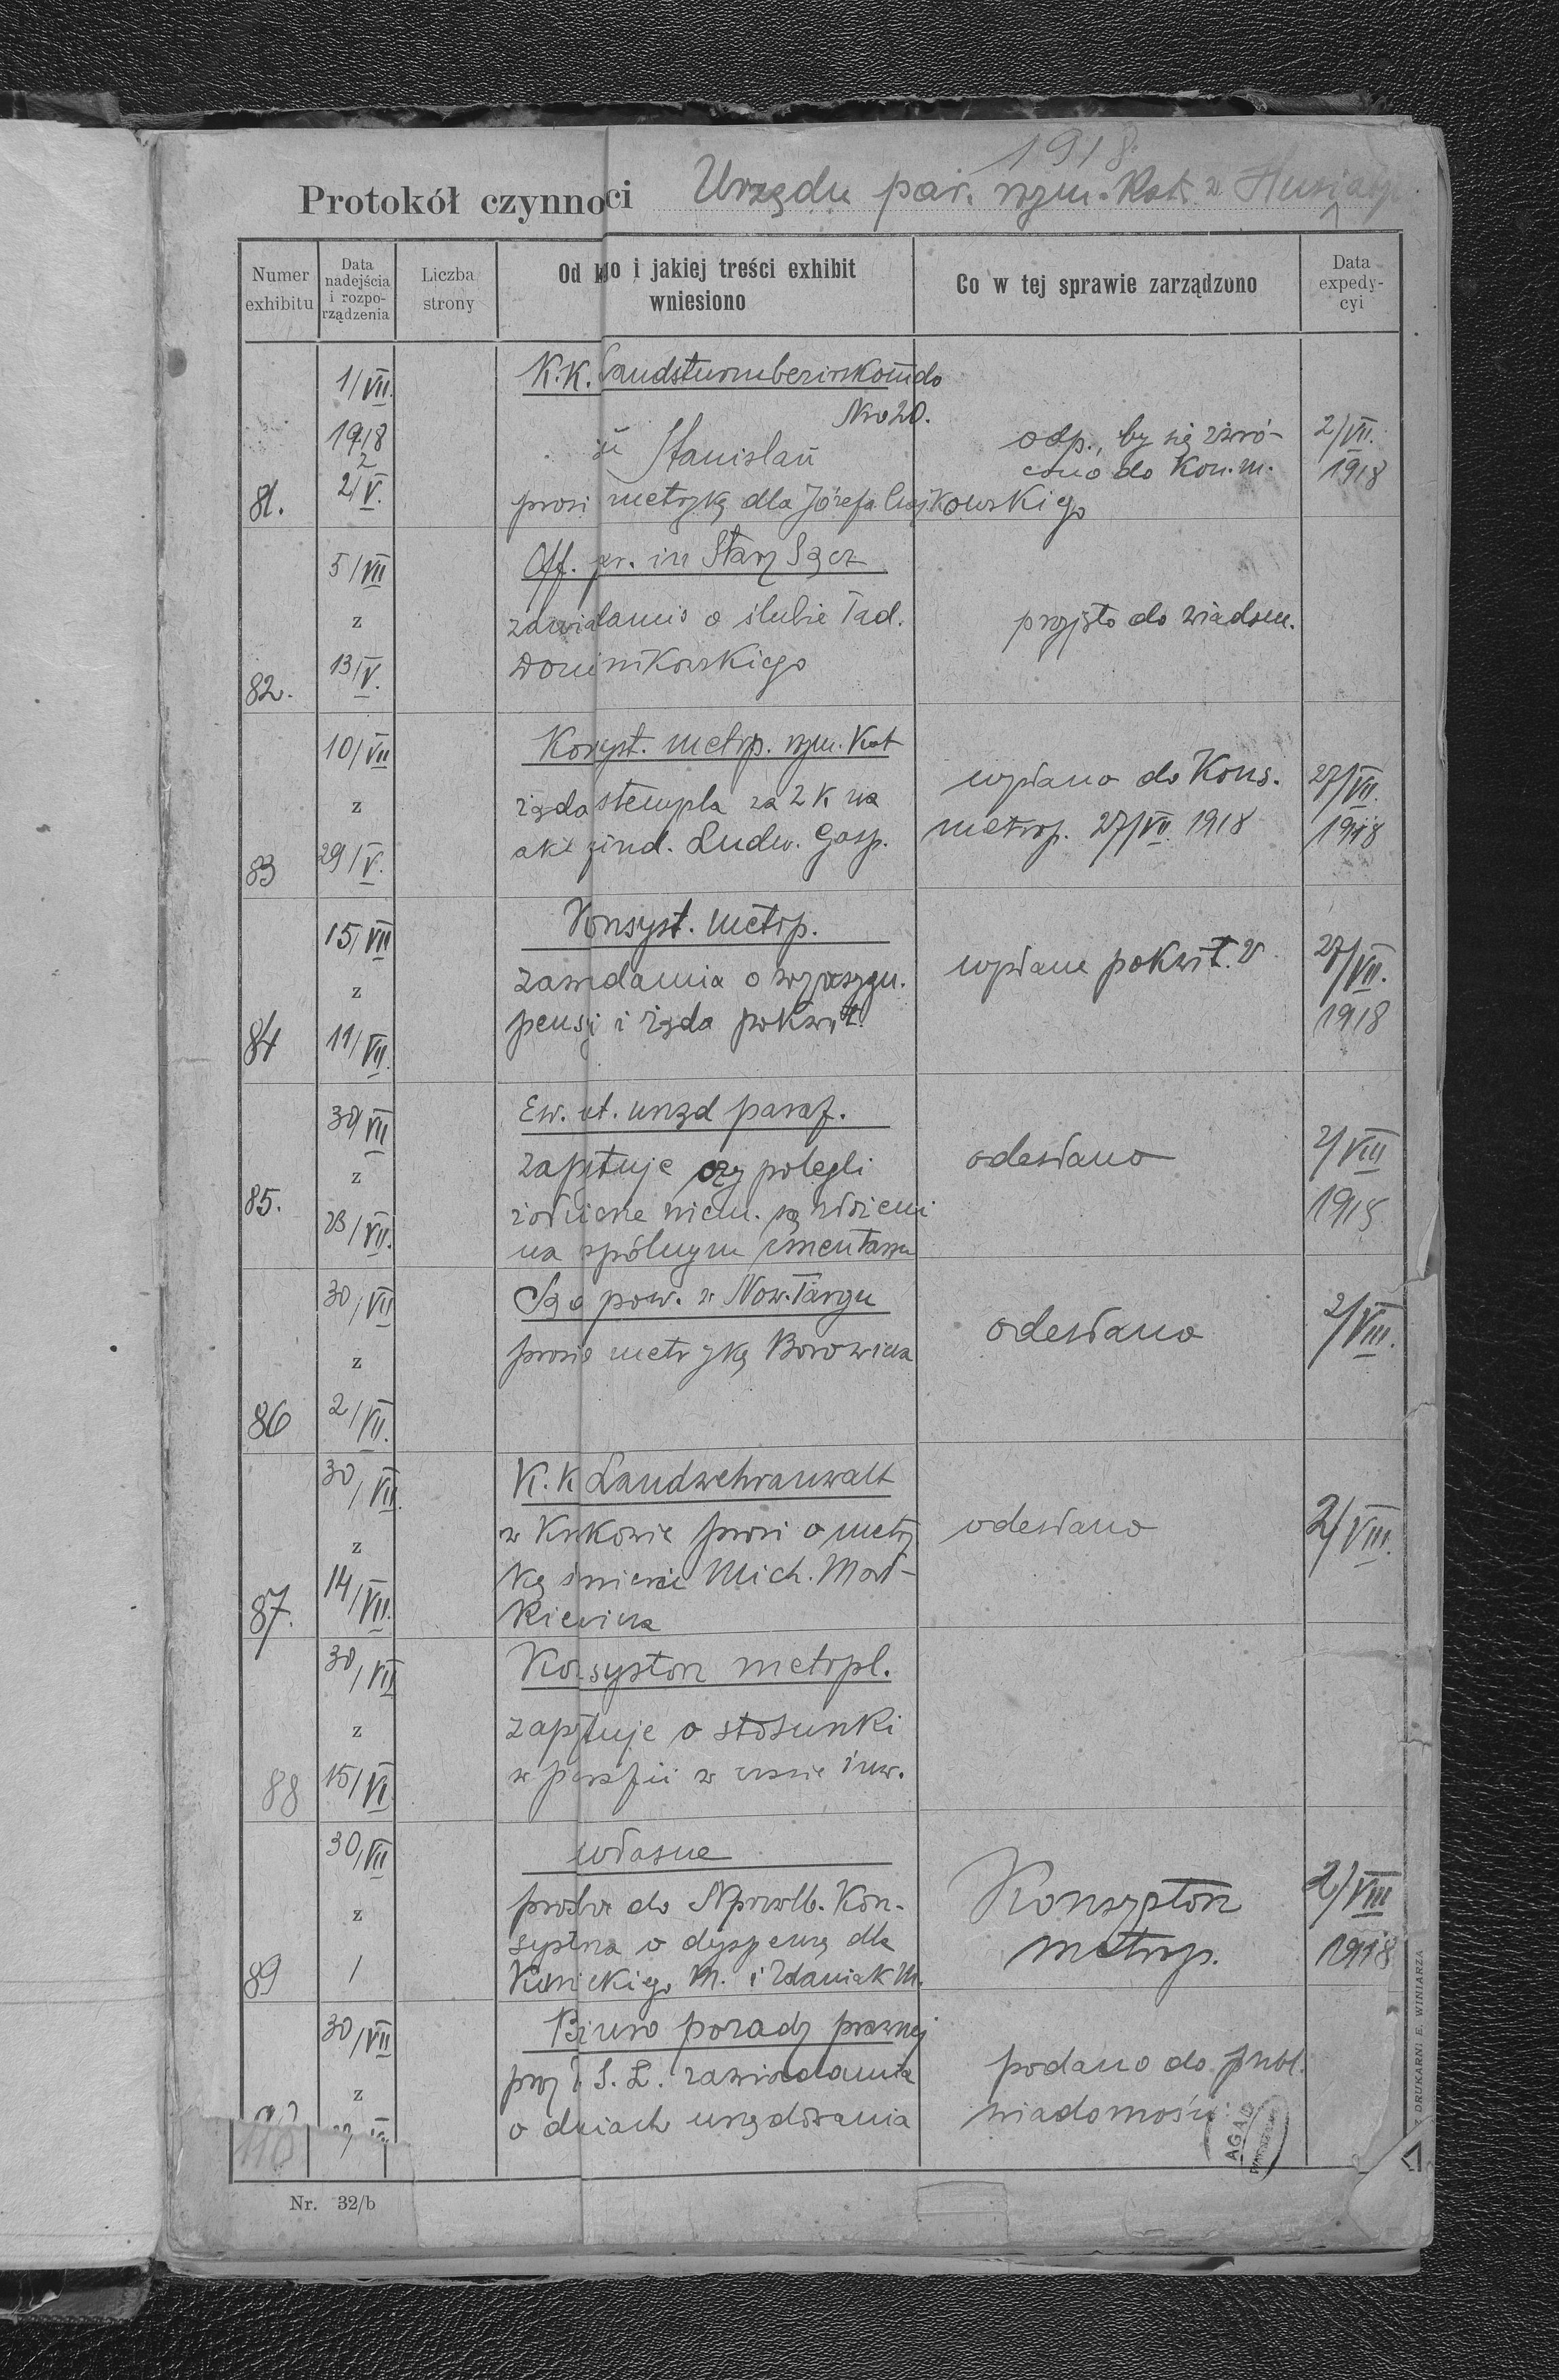 1918.
Protokół czynności Urzędu par. rzym. Kat. w Husiatynie
Numer exhibitu
Data nadejścia i rozporządzenia
Liczba strony
Od kogo i jakiej treści exhibit wniesiono
Co w tej sprawie zarządzono
Data expedycyi
81.
1/VII.
1918
z
2/V.
K.K. Landsturmbezirkskomdo
Nro 20.
in Stanislau
prosi metrykę dla Józefa
odp., by się zwró-
cono do Kon. m.
2/VII.
1918
82.
5/VII
z
13/V.
Off. par. in Stary Sącz
zawiadamia o ślubie Tad.
Dominikowskiego
przyjęto do wiadom.
83
10/VII
z
29/V.
Konsyst. metrp. rzym. Kat
żąda stempla za 2 K na
akt Ludw. Gasp.
wysłano do Kons.
metrop. 27/VII 1918
27/VII.
1918
84
15/VII
z
11/VII.
Konsyst. metrp.
zawiadamia o
pensyi i żąda pokwit.
wysłane pokwit.
27/VII.
1918
85.
30/VII
z
23/VII.
Ew. urząd paraf.
zapytuje czy polegli
żołnierze niem. są złożeni
na spólnym cmentarzu
odesłano
2/VIII
1918
86
30/VII
z
2/VII.
Sąd pow. w Now. Targu
prosi o metrykę Borowicza
odesłano
2/VIII.
87.
30/VII.
z
14/VII.
K. K Landwehranwalt
w Krakowie prosi o metry
kę śmierci Mich.
kiewicza
odesłano
2/VIII.
88
30/VII
z
15/VI
Konsystorz metropl.
zapytuje o stosunki
w parafii w czasie inw.
89
30/VII
z
/
własne
prośba do Konsystorza o dyspenzę dla
M. i Zdaniak M.
Konsystorz
metrop.
2/VIII
1918
30/VII
z
Biuro porady prawnej
przy T. S. L. zawiadamia
o dniach urzędowania
podano do publ.
wiadomości
110
AGAD
WARSZAWA
Z DRUKARNI E. WINIARZA
Nr. 32/b